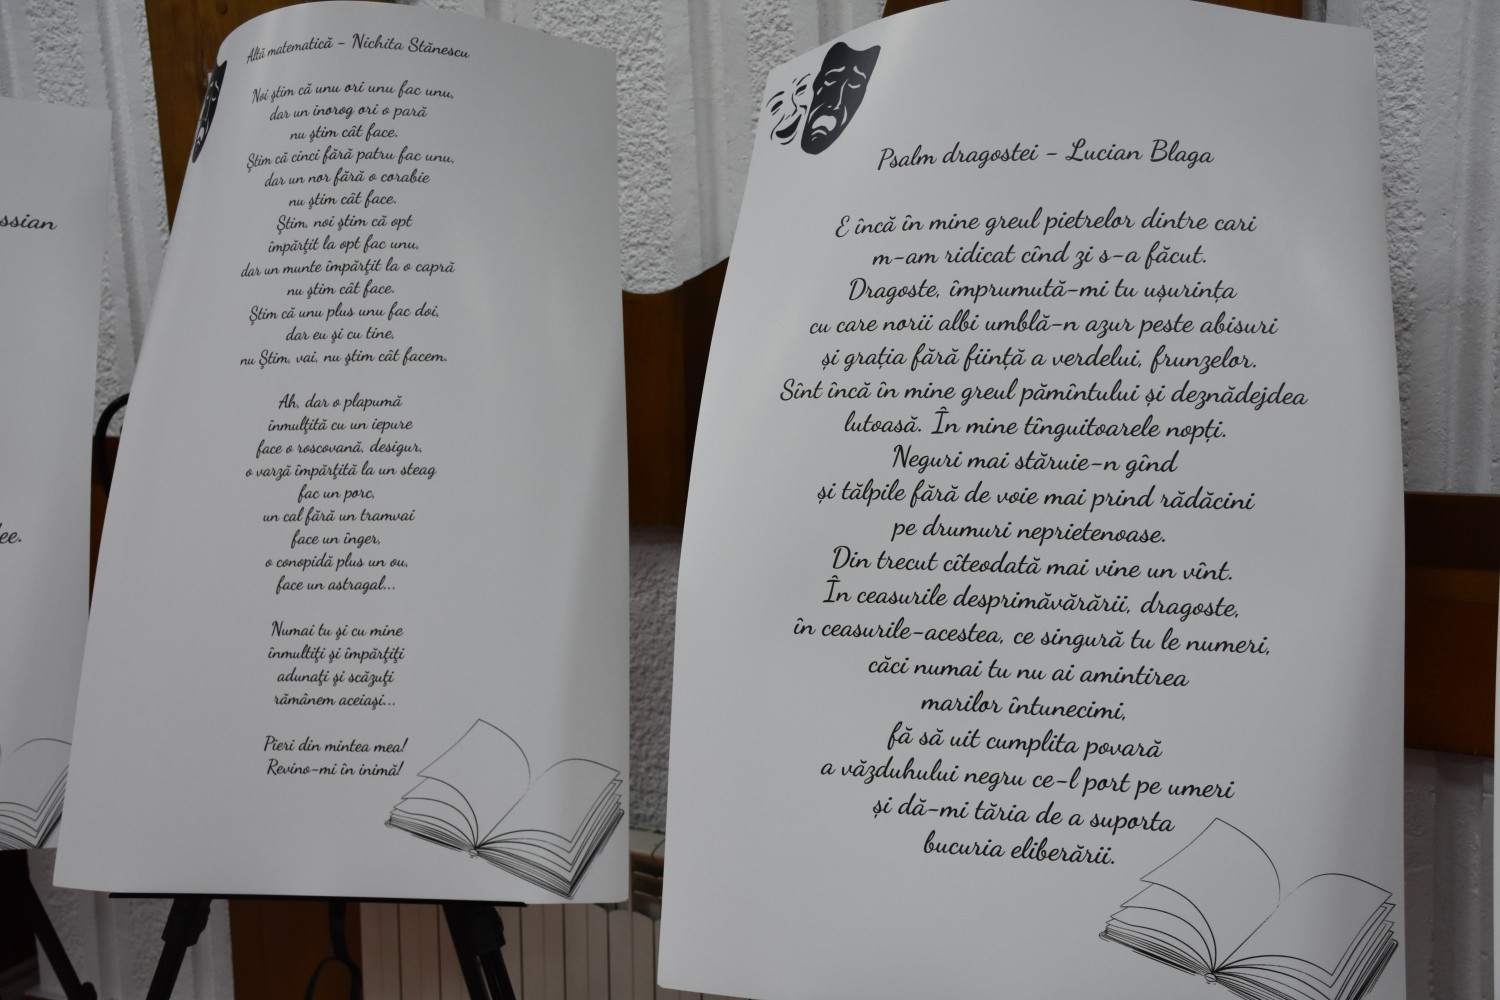 ssian
ee.
Altă matematică - Nichita Stănescu
Noi ştim că unu ori unu fac unu,
dar un inorog ori o pară
nu ştim cât face.
Ştim că cinci fără patru fac unu,
dar un nor fără o corabie
nu ştim cât face.
Ştim, noi ştim că opt
împărţit la opt fac unu,
dar un munte împărţit la o capră
nu ştim cât face.
Ştim că unu plus unu fac doi,
dar eu şi cu tine,
nu Ştim, vai, nu ştim cât facem.
Ah, dar o plapumă
înmulţită cu un iepure
face o roscovană, desigur,
o varză împărţită la un steag
fac un porc,
un cal fără un tramvai
face un înger,
o conopidă plus un ou,
face un astragal...
Numai tu şi cu mine
înmultiţi şi împărţiţi
adunaţi şi scăzuţi
rămânem aceiaşi...
Pieri din mintea mea!
Revino-mi în inimă!
Psalm dragostei - Lucian Blaga
E încă în mine greul pietrelor dintre cari
m-am ridicat cînd zi s-a făcut.
Dragoste, împrumută-mi tu ușurința
cu care norii albi umblă-n azur peste abisuri
și grația fără ființă a verdelui, frunzelor.
Sînt încă în mine greul pămîntului și deznădejdea
lutoasă. În mine tînguitoarele nopți.
Neguri mai stăruie-n gînd
și tălpile fără de voie mai prind rădăcini
pe drumuri neprietenoase.
Din trecut cîteodată mai vine un vînt.
În ceasurile desprimăvărării, dragoste,
în ceasurile-acestea, ce singură tu le numeri,
căci numai tu nu ai amintirea
marilor întunecimi,
fă să uit cumplita povară
a văzduhului negru ce-l port pe umeri
și dă-mi tăria de a suporta
bucuria eliberării.